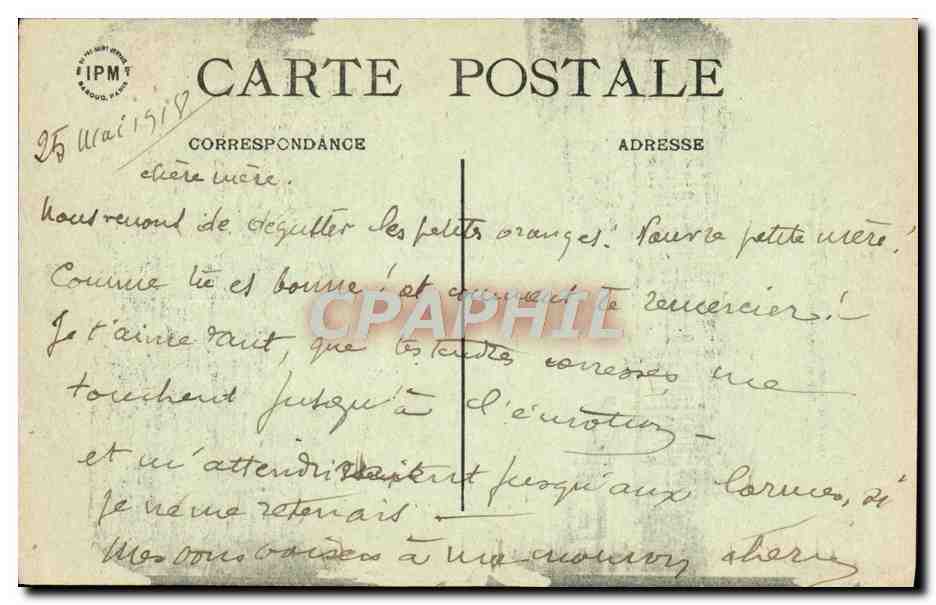 IPM
BABOUD, PARIS
CARTE POSTALE
25 Mai 1918
CORRESPONDANCE
ADRESSE
chère mère.
Nous venons de degutter les petites oranges! Pauvre petite mère!
Comme tu es bonne! et comment te remercier!
Je t'aime tant, que tes tendres caresses me
touchent jusqu'à l'émotion
et m'attendriraient jusqu'aux larmes, si
je ne me retenais
Mes bons baisers à ma maman chérie
CPAPHIL